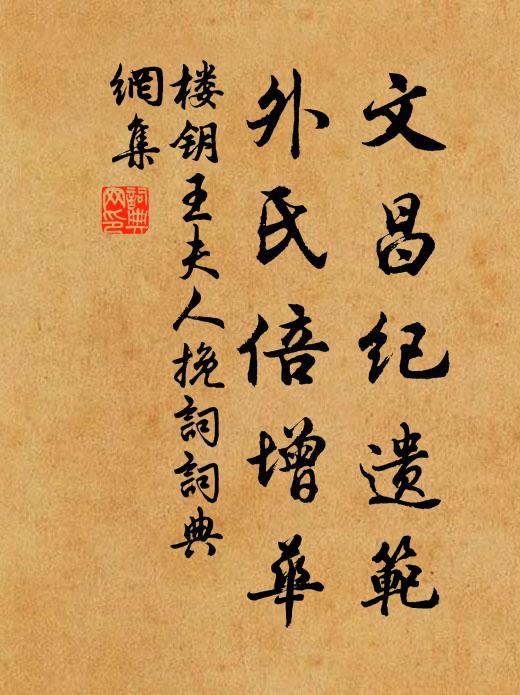 文昌纪遗範
外氏倍增華
楼钥王夫人挽詞詞典
網集
詞典网印